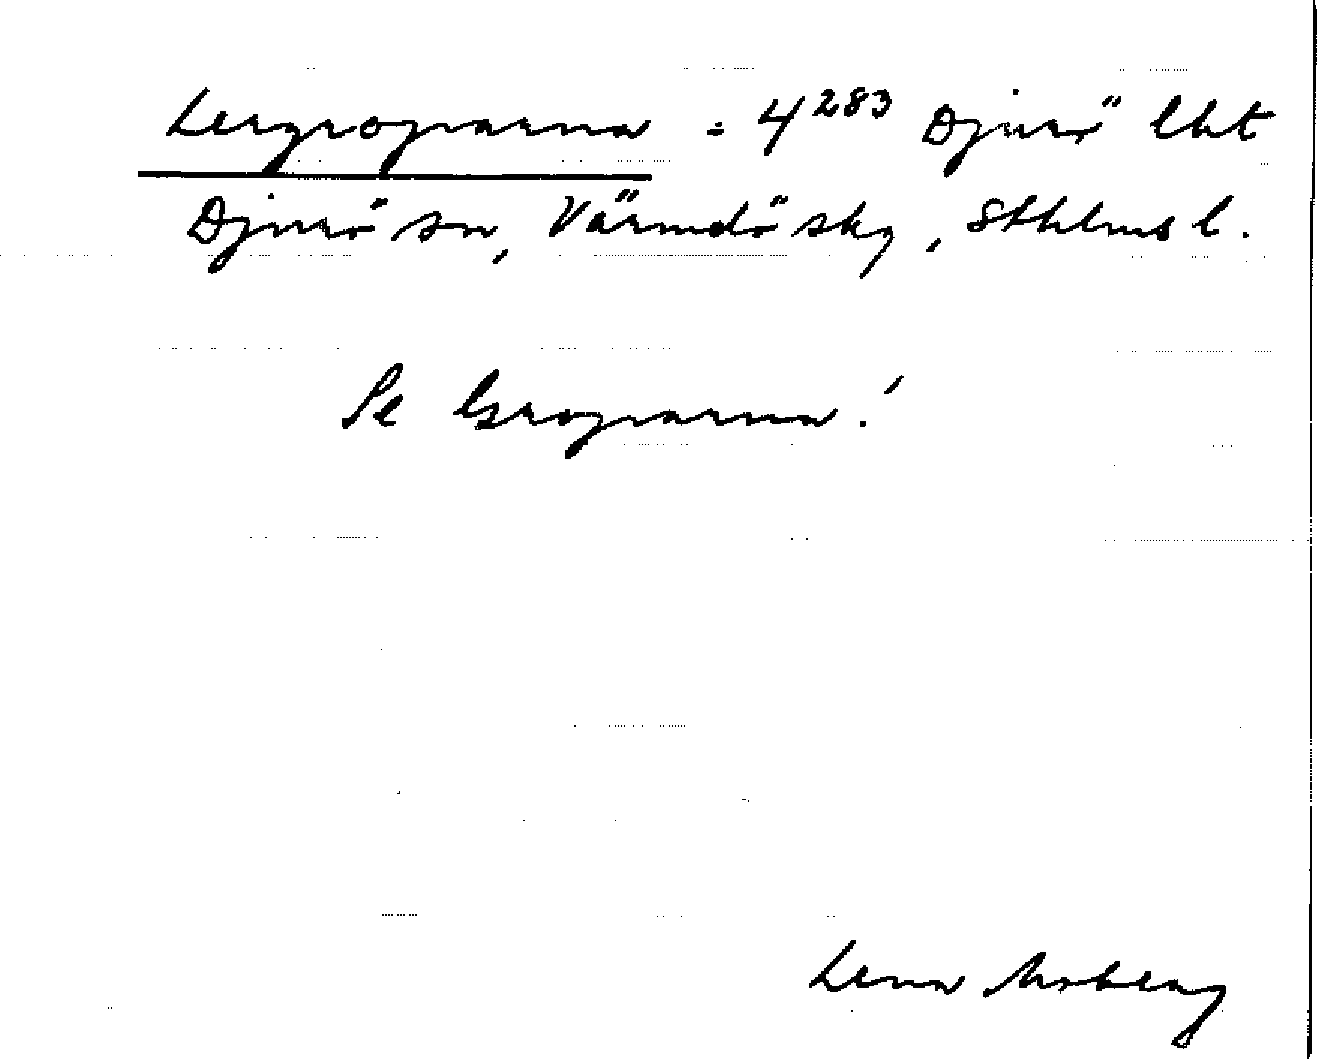 Lergroparna = 4283 Djurö lht
Djurö sn, Värmdö skg, Sthlms l.
Se Groparna!
Lena Moberg